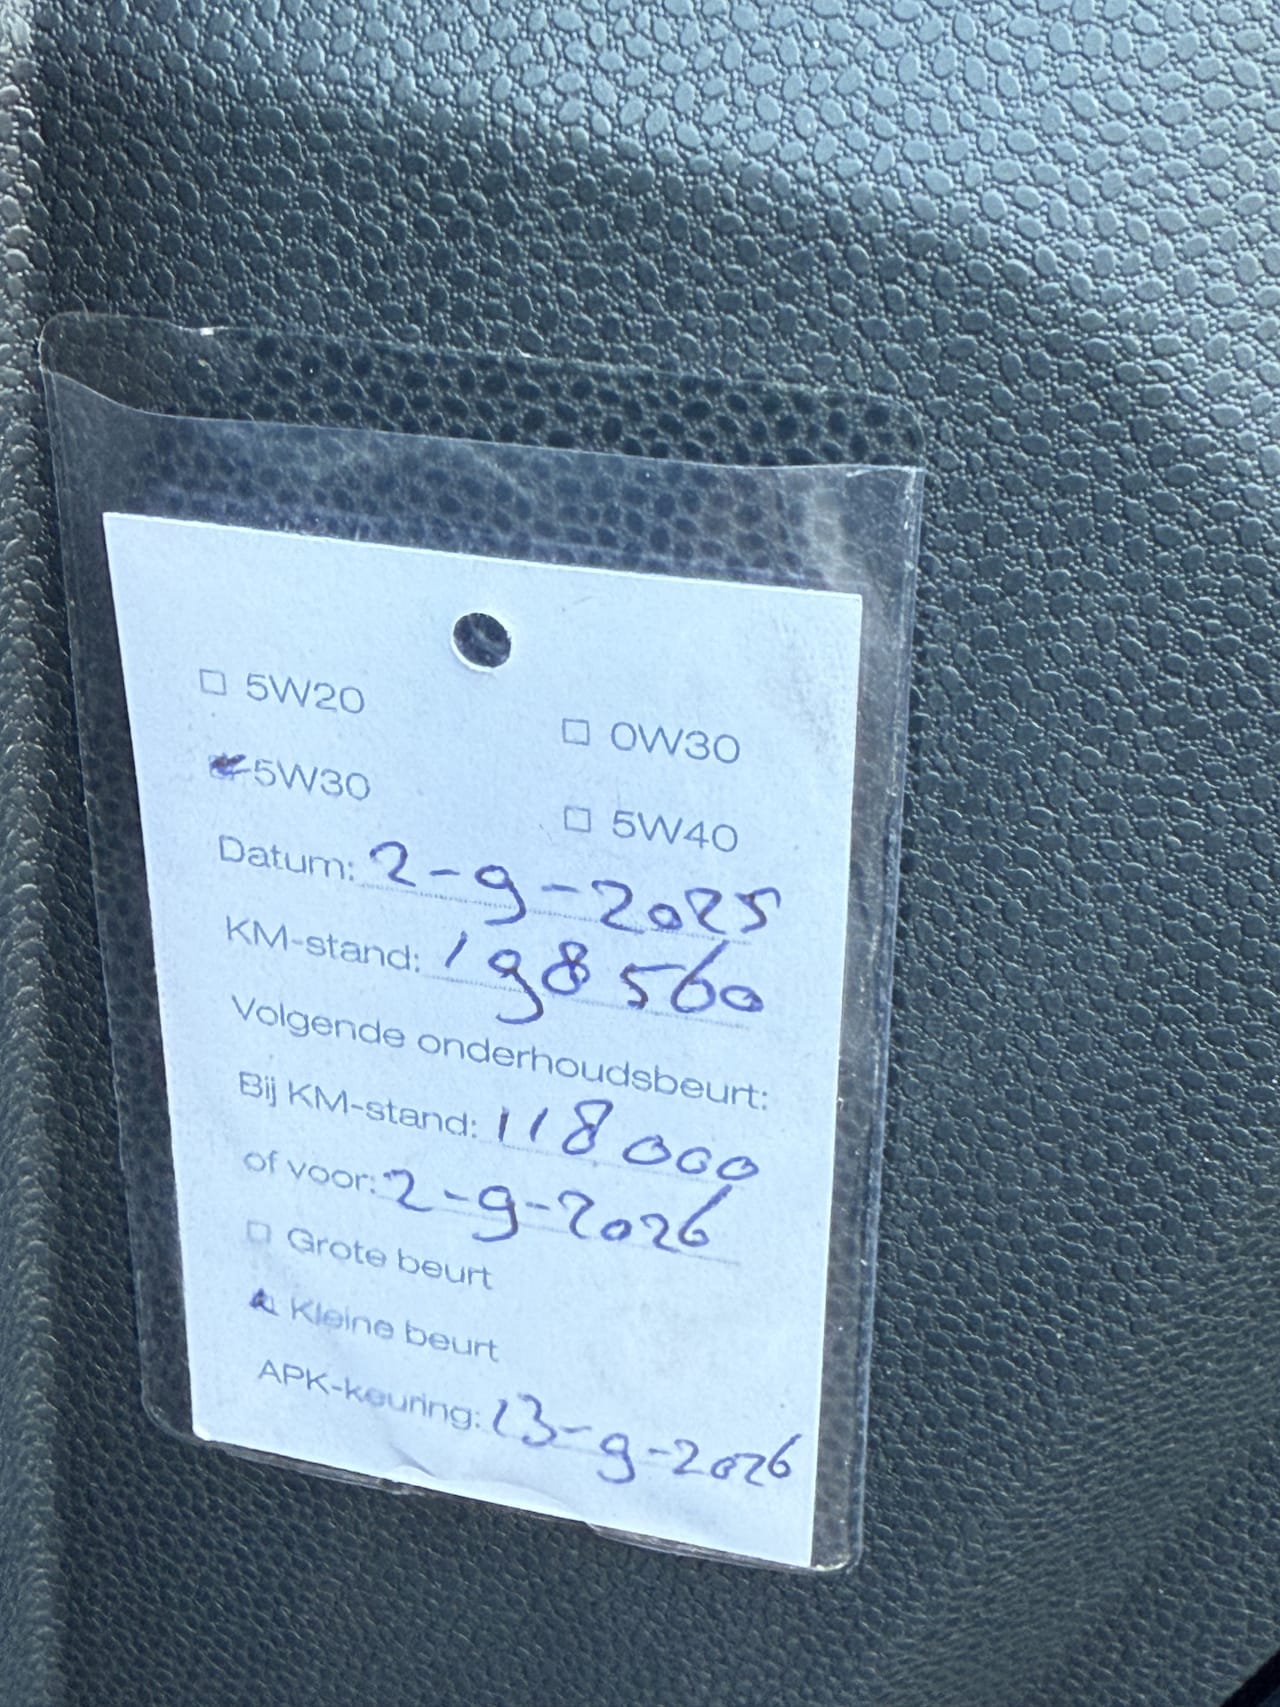 5W20
0W30
5W30
5W40
Datum: 2-9-2025
KM-stand: 198560
Volgende onderhoudsbeurt:
Bij KM-stand: 118000
of voor: 2-9-2026
Grote beurt
Kleine beurt
APK-keuring: 13-9-2026